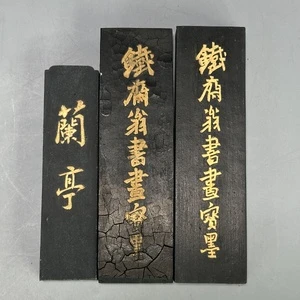 蘭亭
鐵齋翁書畫寶墨
鐵齋翁書畫寶墨